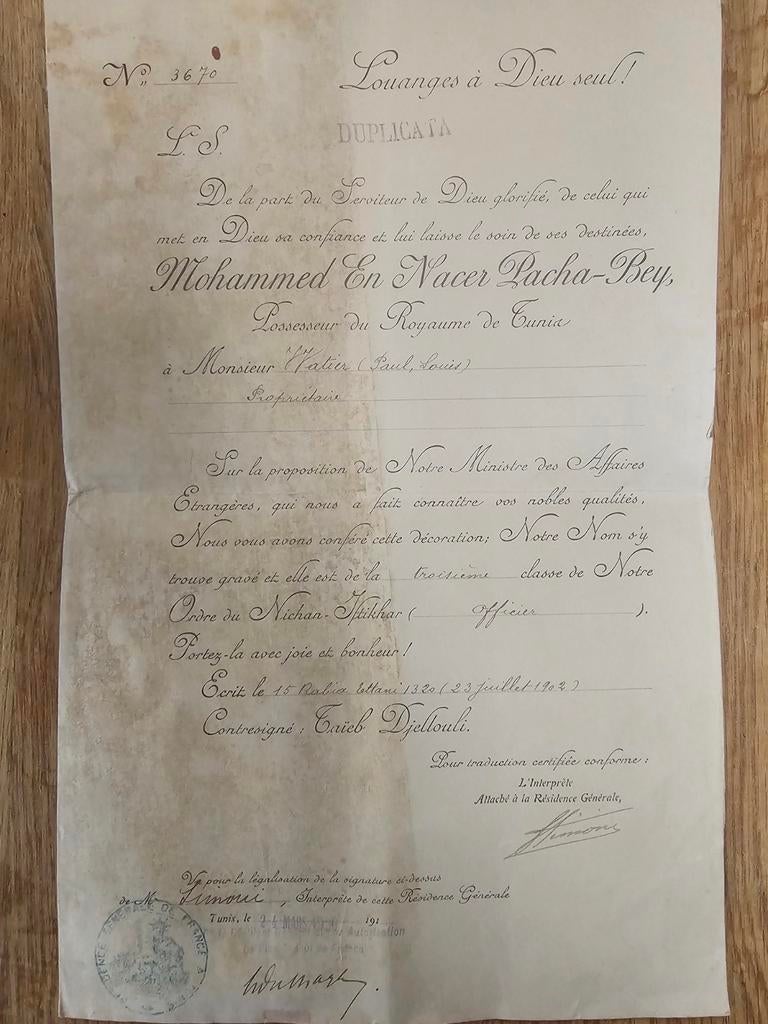 N° 3670
Louanges à Dieu seul!
DUPLICATA
L. S.
De la part du Serviteur de Dieu glorifié, de celui qui
met en Dieu sa confiance et lui laisse le soin de ses destinées,
Mohammed En Nacer Pacha-Bey,
Possesseur du Royaume de Tunis
à Monsieur Watier (Paul, Louis)
Propriétaire
Sur la proposition de Notre Ministre des Affaires
Etrangères, qui nous a fait connaître vos nobles qualités,
Nous vous avons conféré cette décoration; Notre Nom s'y
trouve gravé et elle est de la troisième classe de Notre
Ordre du Nichan-Iftikhar ( officier ).
Portez-la avec joie et bonheur!
Ecrit le 15 Rabia Ettani 1320 (23 juillet 1902)
Contresigné: Taïeb Djellouli.
Pour traduction certifiée conforme:
L'Interprète
Attaché à la Résidence Générale,
Simoni
Vu pour la légalisation de la signature ci-dessus
de M Simoni, Interprète de cette Résidence Générale
Tunis, le 24 MARS 191